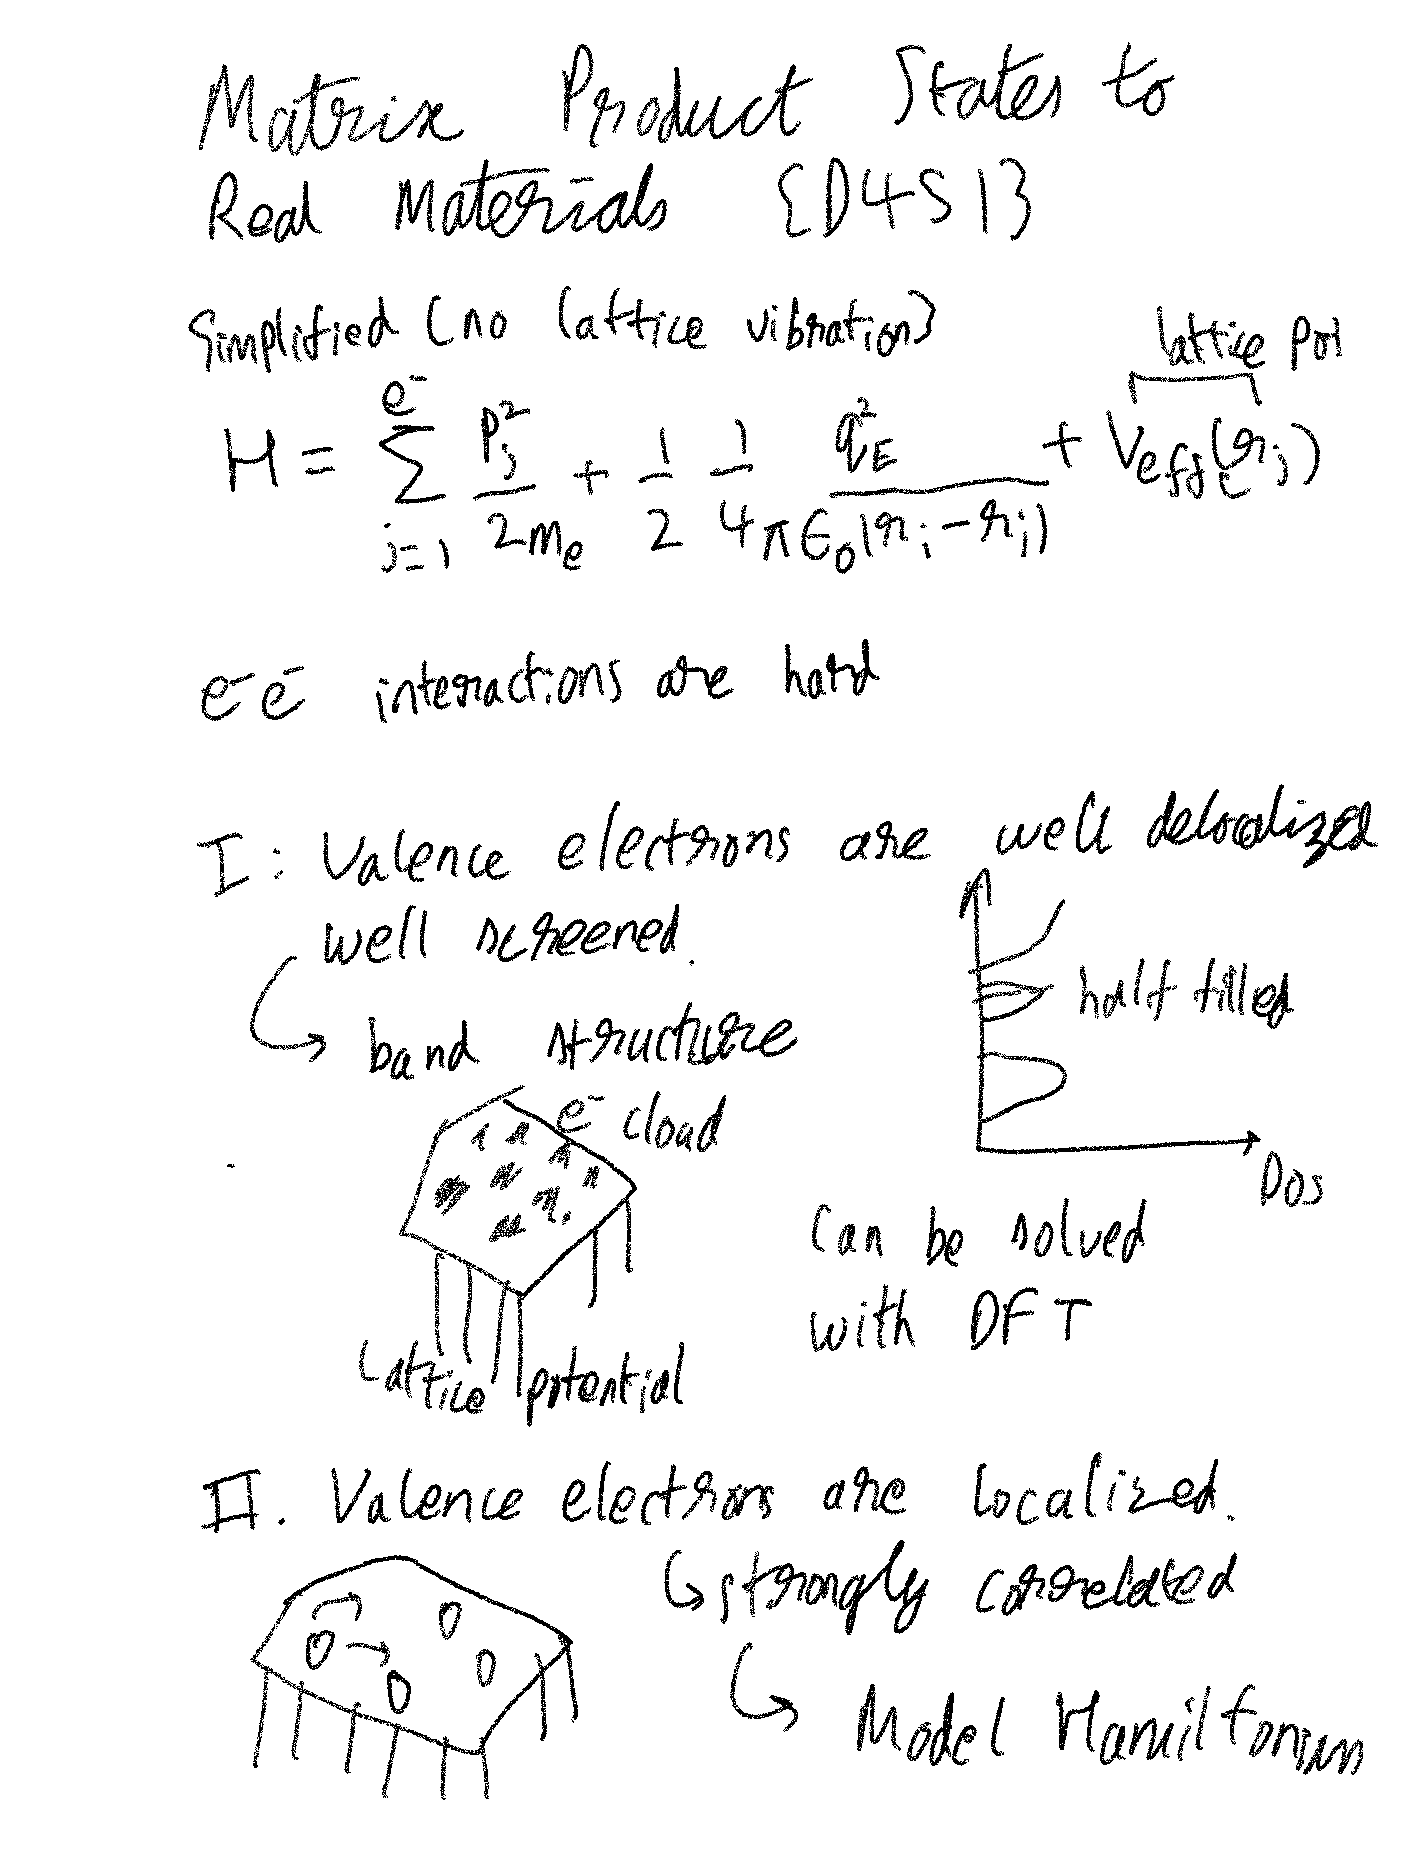 Matrix Product States to
Real Materials {D4S1}
Simplified (no lattice vibration)
lattice pot
H = \sum_{j=1}^{e^-} \frac{p_j^2}{2m_e} + \frac{1}{2} \frac{1}{4\pi\epsilon_0} \frac{q_E^2}{|r_i - r_j|} + V_{eff}(r_j)
e⁻e⁻ interactions are hard
I: Valence electrons are well delocalized
well screened.
half filled
band structure
e⁻ cloud
DOS
Can be solved
with DFT
Lattice potential
II. Valence electrons are localized.
strongly correlated
Model Hamiltonian